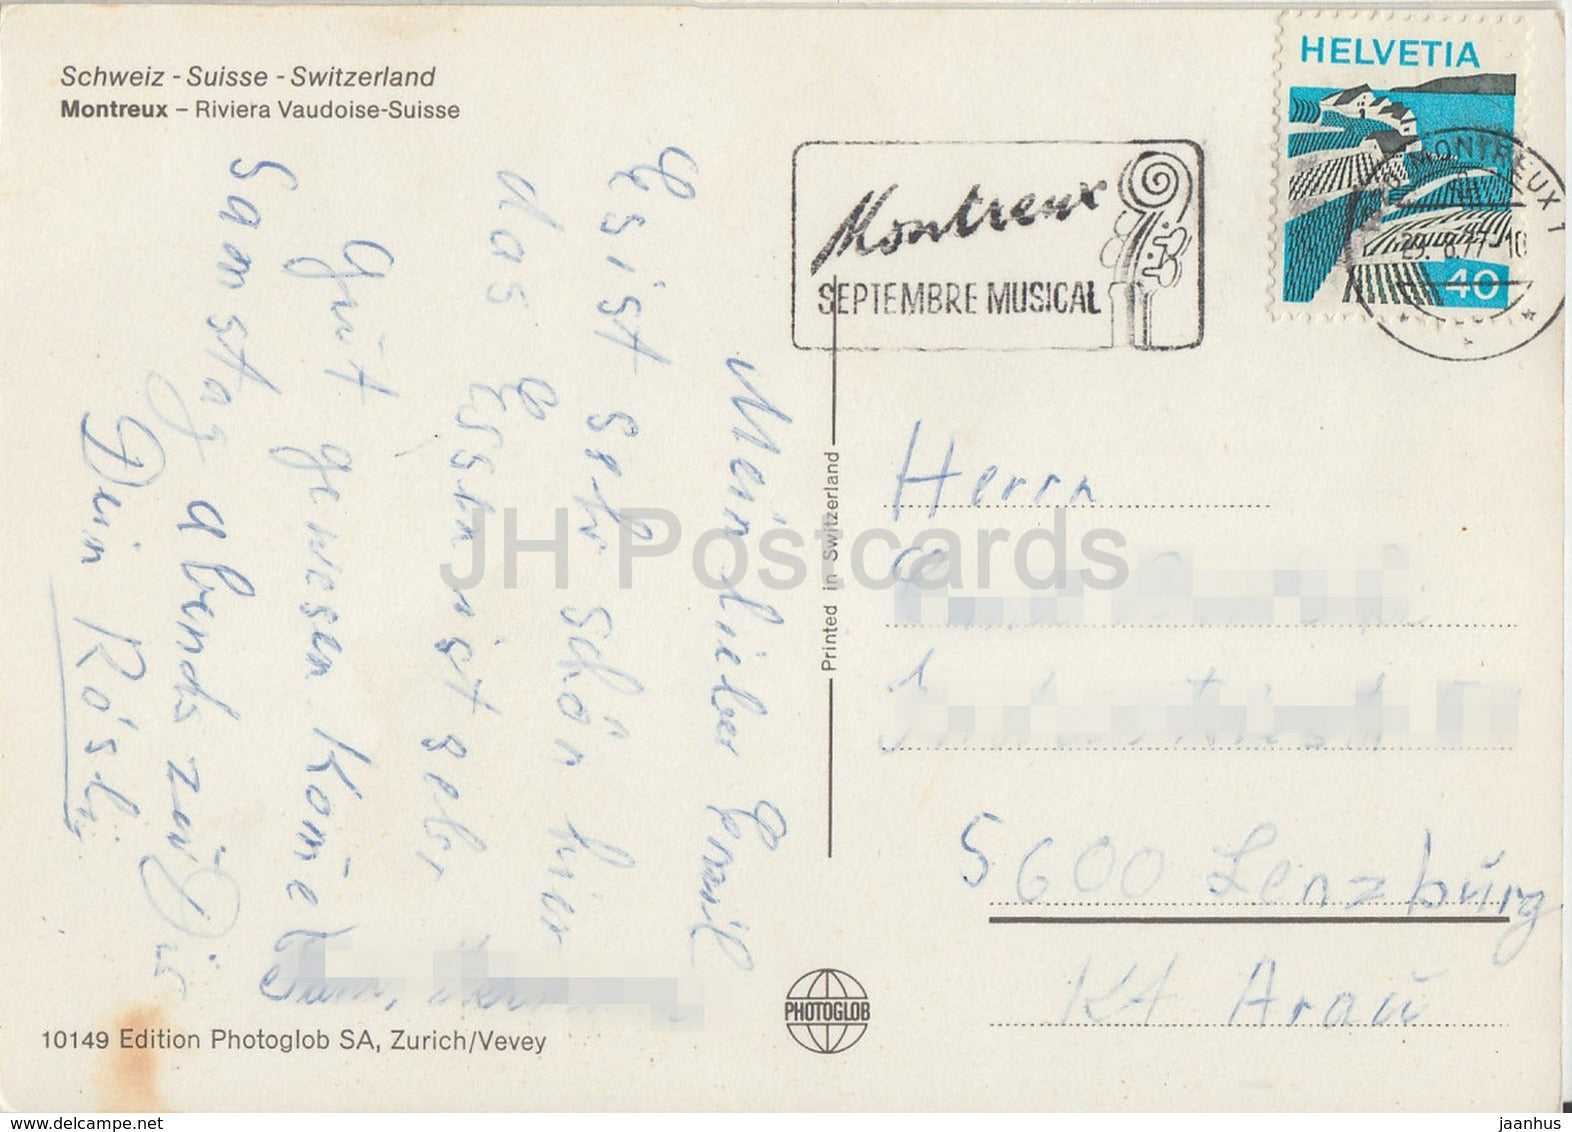 Schweiz - Suisse - Switzerland
Montreux – Riviera Vaudoise-Suisse
HELVETIA
40
MONTREUX 1
29. 8.77-10
Montreux
SEPTEMBRE MUSICAL
Mein lieber Emil
Es ist sehr schön hier
das Essen ist sehr
gut gewesen. Kome
Samstag abends zu Dir
Dein Rösli
Herrn
5600 Lenzburg
Kt Arau
Printed in Switzerland
PHOTOGLOB
10149 Edition Photoglob SA, Zurich/Vevey
JH Postcards
www.delcampe.net
jaanhus